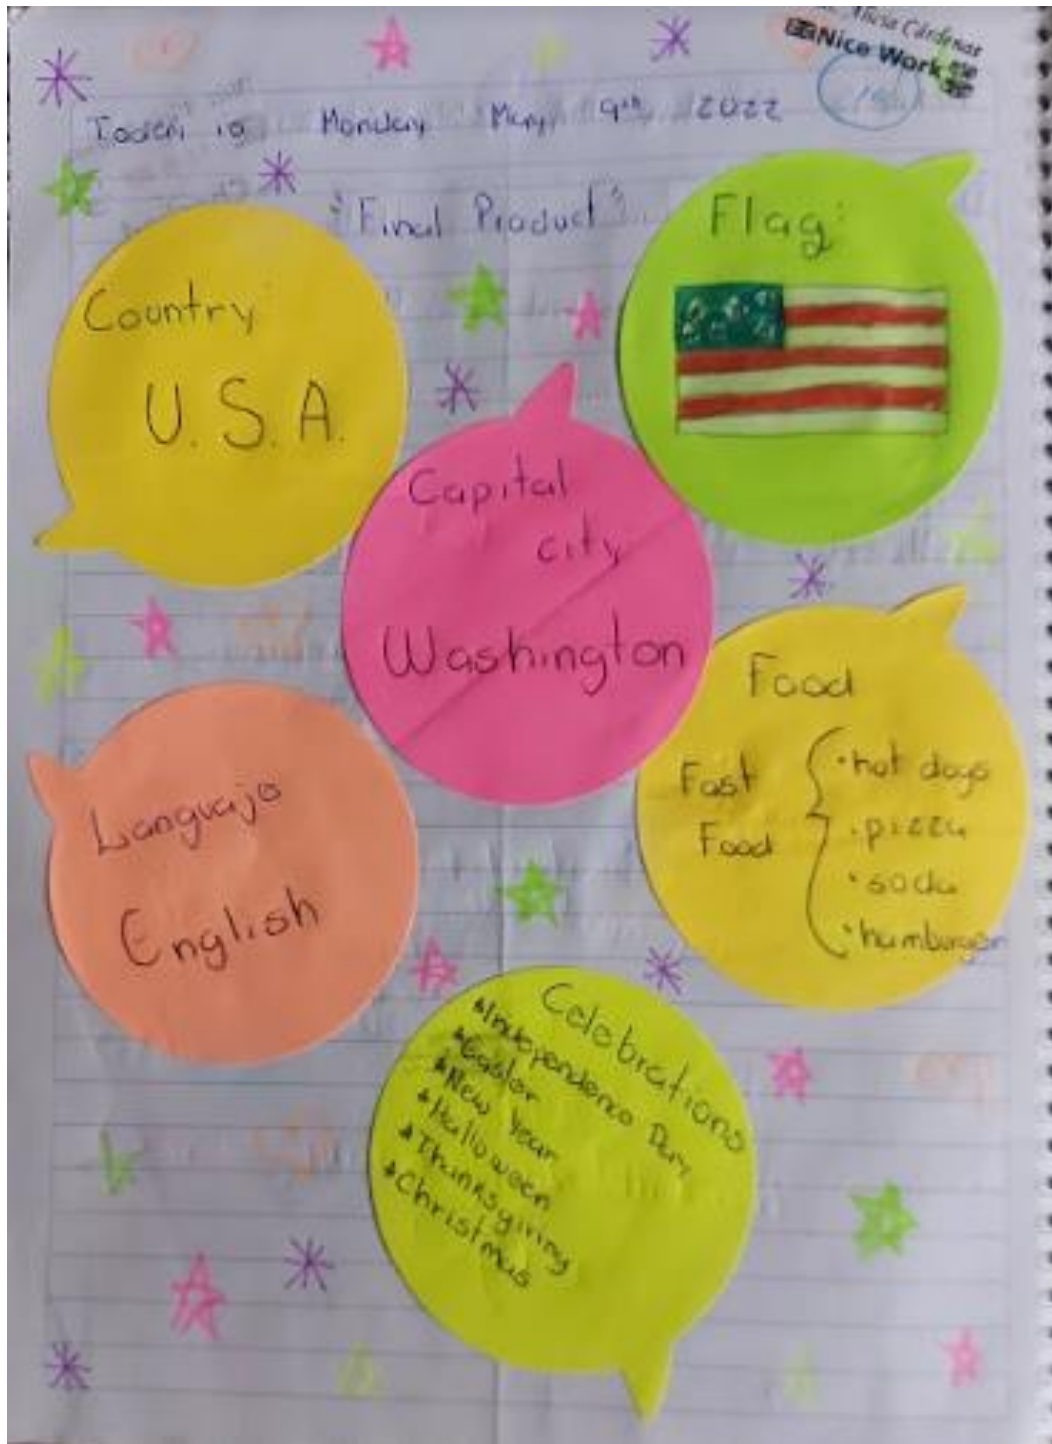 Alicia Cárdenas
Nice Work
Today is Monday May 9th 2022
"Final Product"
Country:
U.S.A.
Flag:
Capital
city
Washington
Food
Fast
Food
· hot dogs
· pizza
· soda
· hamburger
Languaje
English
Celebrations
*Independence Day
*Easter
*New Year
*Halloween
*Thanksgiving
*Christmas